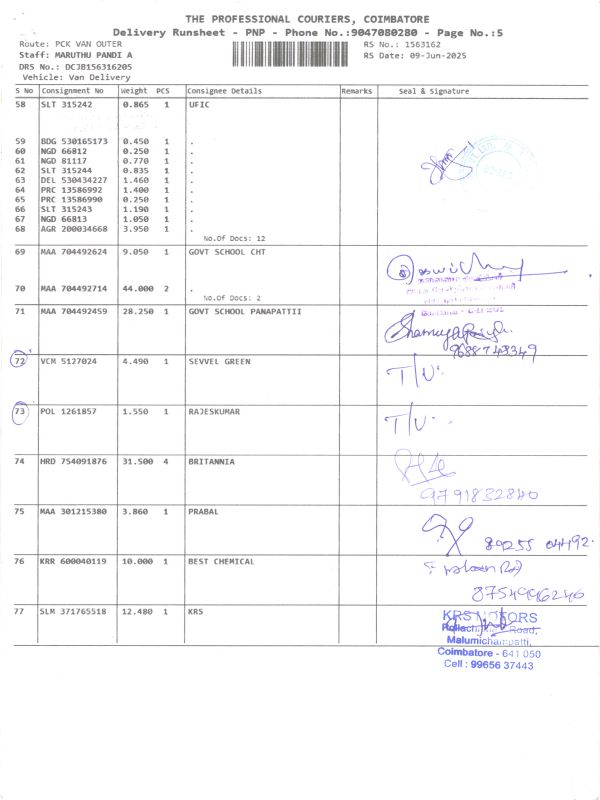 THE PROFESSIONAL COURIERS, COIMBATORE
Delivery Runsheet - PNP - Phone No.:9047080280 - Page No.:5
Route: PCK VAN OUTER
RS No.: 1563162
Staff: MARUTHU PANDI A
RS Date: 09-Jun-2025
DRS No.: DCJB156316205
Vehicle: Van Delivery
S No Consignment No Weight PCS Consignee Details Remarks Seal & Signature
58 SLT 315242 0.865 1 UFIC
59 BDG 530165173 0.450 1 .
60 NGD 66812 0.250 1 .
61 NGD 81117 0.770 1 .
62 SLT 315244 0.835 1 .
63 DEL 530434227 1.460 1 .
64 PRC 13586992 1.400 1 .
65 PRC 13586990 0.250 1 .
66 SLT 315243 1.190 1 .
67 NGD 66813 1.050 1 .
68 AGR 200034668 3.950 1 .
No.Of Docs: 12
69 MAA 704492624 9.050 1 GOVT SCHOOL CHT
70 MAA 704492714 44.000 2 .
No.Of Docs: 2
71 MAA 704492459 28.250 1 GOVT SCHOOL PANAPATTII
9688743349
72 VCM 5127024 4.490 1 SEVVEL GREEN
T/U.
73 POL 1261857 1.550 1 RAJESKUMAR
T/U.
74 HRD 754091876 31.500 4 BRITANNIA
9791832840
75 MAA 301215380 3.860 1 PRABAL
89255 04192.
76 KRR 600040119 10.000 1 BEST CHEMICAL
8754996246
77 SLM 371765518 12.480 1 KRS
KRS MOTORS
Pollachi Road,
Malumichampatti,
Coimbatore - 641 050
Cell : 99656 37443